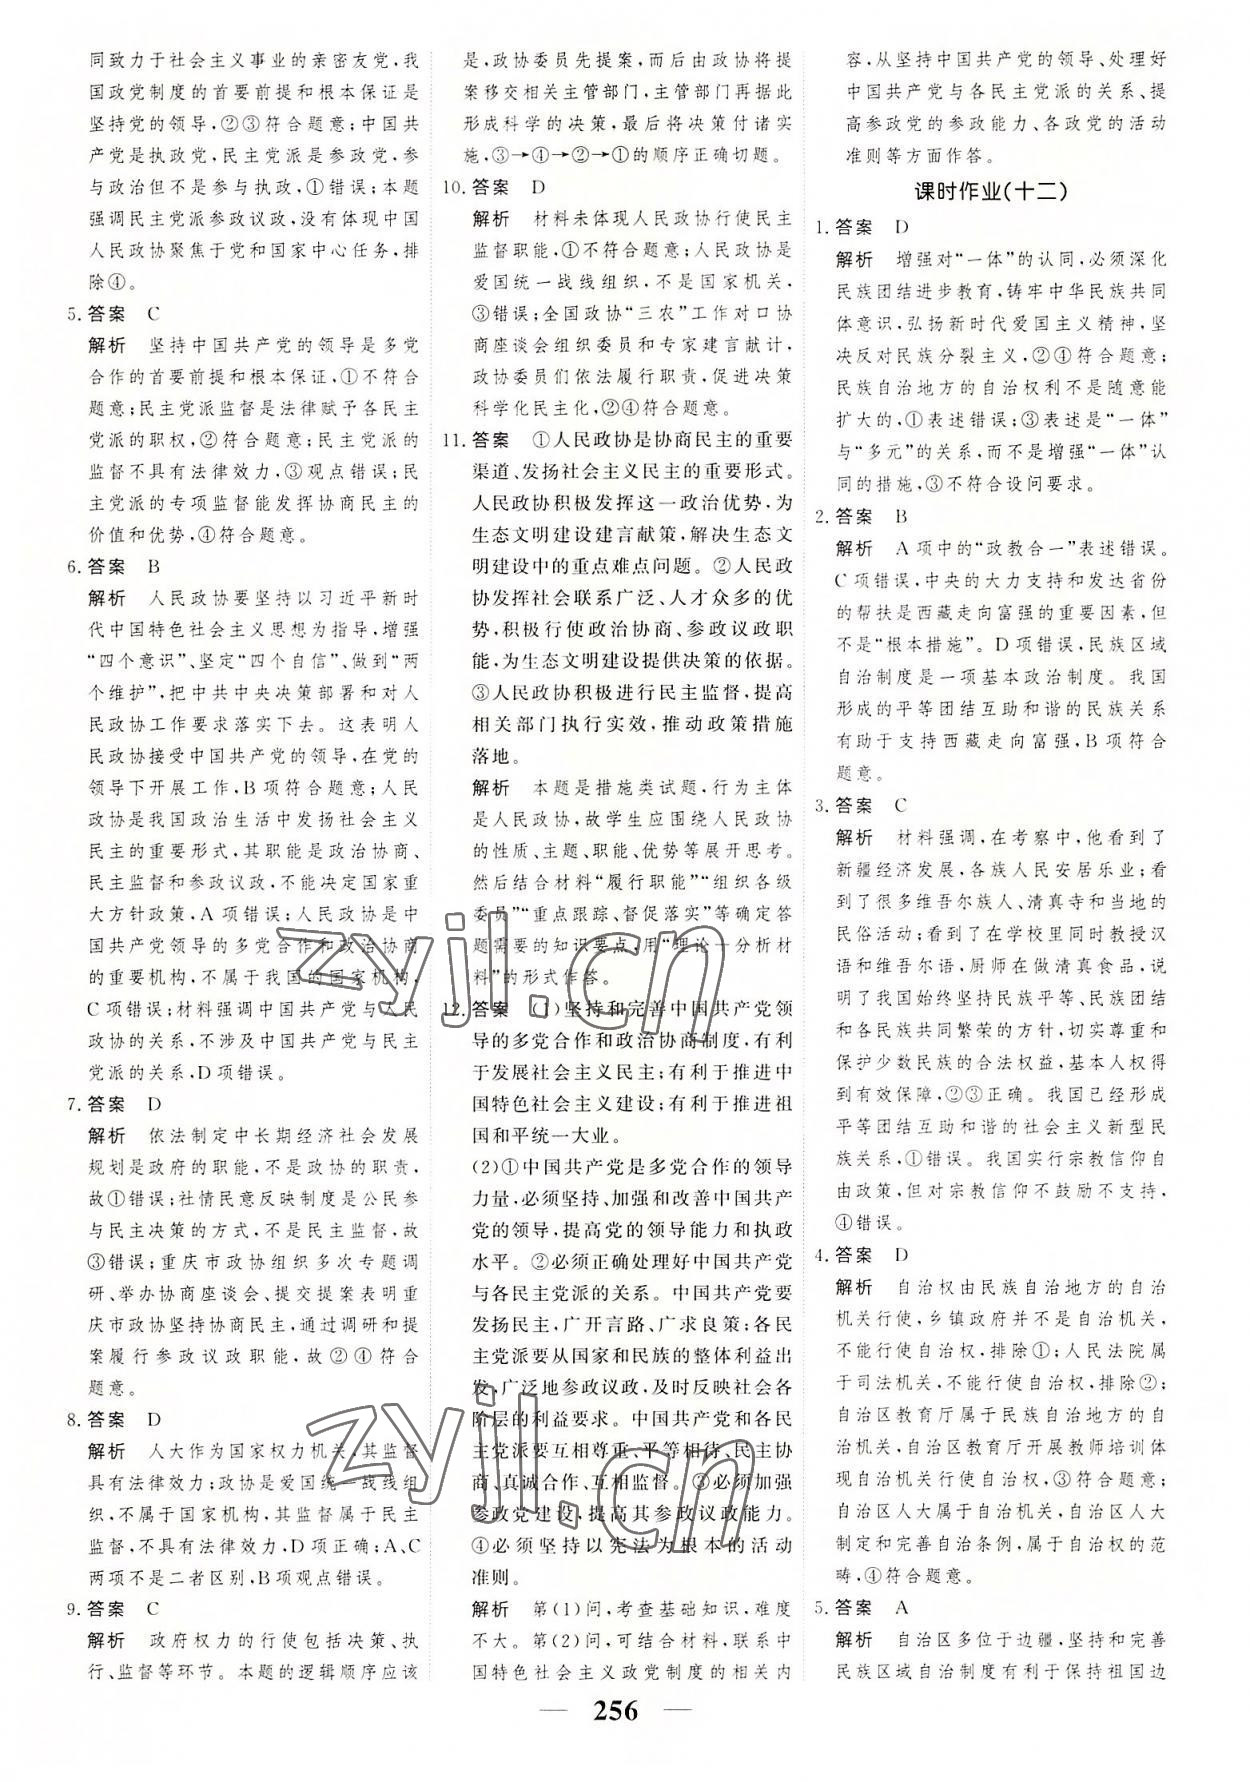 同致力于社会主义事业的亲密友党,我
国政党制度的首要前提和根本保证是
坚持党的领导,②③符合题意;中国共
产党是执政党,民主党派是参政党,参
与政治但不是参与执政,①错误;本题
强调民主党派参政议政,没有体现中国
人民政协聚焦于党和国家中心任务,排
除④。
5. 答案 C
解析 坚持中国共产党的领导是多党
合作的首要前提和根本保证,①不符合
题意;民主党派监督是法律赋予各民主
党派的职权,②符合题意;民主党派的
监督不具有法律效力,③观点错误;民
主党派的专项监督能发挥协商民主的
价值和优势,④符合题意。
6. 答案 B
解析 人民政协要坚持以习近平新时
代中国特色社会主义思想为指导,增强
“四个意识”、坚定“四个自信”、做到“两
个维护”,把中共中央决策部署和对人
民政协工作要求落实下去。这表明人
民政协接受中国共产党的领导,在党的
领导下开展工作,B项符合题意;人民
政协是我国政治生活中发扬社会主义
民主的重要形式,其职能是政治协商、
民主监督和参政议政,不能决定国家重
大方针政策,A项错误;人民政协是中
国共产党领导的多党合作和政治协商
的重要机构,不属于我国的国家机构,
C项错误;材料强调中国共产党与人民
政协的关系,不涉及中国共产党与民主
党派的关系,D项错误。
7. 答案 D
解析 依法制定中长期经济社会发展
规划是政府的职能,不是政协的职责,
故①错误;社情民意反映制度是公民参
与民主决策的方式,不是民主监督,故
③错误;重庆市政协组织多次专题调
研、举办协商座谈会、提交提案表明重
庆市政协坚持协商民主,通过调研和提
案履行参政议政职能,故②④符合
题意。
8. 答案 D
解析 人大作为国家权力机关,其监督
具有法律效力;政协是爱国统一战线组
织,不属于国家机构,其监督属于民主
监督,不具有法律效力,D项正确;A、C
两项不是二者区别,B项观点错误。
9. 答案 C
解析 政府权力的行使包括决策、执
行、监督等环节。本题的逻辑顺序应该
是,政协委员先提案,而后由政协将提
案移交相关主管部门,主管部门再据此
形成科学的决策,最后将决策付诸实
施,③→④→②→①的顺序正确切题。
10. 答案 D
解析 材料未体现人民政协行使民主
监督职能,①不符合题意;人民政协是
爱国统一战线组织,不是国家机关,
③错误;全国政协“三农”工作对口协
商座谈会组织委员和专家建言献计,
政协委员们依法履行职责,促进决策
科学化民主化,②④符合题意。
11. 答案 ①人民政协是协商民主的重要
渠道、发扬社会主义民主的重要形式。
人民政协积极发挥这一政治优势,为
生态文明建设建言献策,解决生态文
明建设中的重点难点问题。②人民政
协发挥社会联系广泛、人才众多的优
势,积极行使政治协商、参政议政职
能,为生态文明建设提供决策的依据。
③人民政协积极进行民主监督,提高
相关部门执行实效,推动政策措施
落地。
解析 本题是措施类试题,行为主体
是人民政协,故学生应围绕人民政协
的性质、主题、职能、优势等展开思考。
然后结合材料“履行职能”“组织各级
委员”“重点跟踪、督促落实”等确定答
题需要的知识要点,用“理论+分析材
料”的形式作答。
12. 答案 (1)坚持和完善中国共产党领
导的多党合作和政治协商制度,有利
于发展社会主义民主;有利于推进中
国特色社会主义建设;有利于推进祖
国和平统一大业。
(2)①中国共产党是多党合作的领导
力量,必须坚持、加强和改善中国共产
党的领导,提高党的领导能力和执政
水平。②必须正确处理好中国共产党
与各民主党派的关系。中国共产党要
发扬民主,广开言路、广求良策;各民
主党派要从国家和民族的整体利益出
发,广泛地参政议政,及时反映社会各
阶层的利益要求。中国共产党和各民
主党派要互相尊重、平等相待、民主协
商、真诚合作、互相监督。③必须加强
参政党建设,提高其参政议政能力。
④必须坚持以宪法为根本的活动
准则。
解析 第(1)问,考查基础知识,难度
不大。第(2)问,可结合材料,联系中
国特色社会主义政党制度的相关内
容,从坚持中国共产党的领导、处理好
中国共产党与各民主党派的关系、提
高参政党的参政能力、各政党的活动
准则等方面作答。
课时作业(十二)
1. 答案 D
解析 增强对“一体”的认同,必须深化
民族团结进步教育,铸牢中华民族共同
体意识,弘扬新时代爱国主义精神,坚
决反对民族分裂主义,②④符合题意;
民族自治地方的自治权利不是随意能
扩大的,①表述错误;③表述是“一体”
与“多元”的关系,而不是增强“一体”认
同的措施,③不符合设问要求。
2. 答案 B
解析 A项中的“政教合一”表述错误。
C项错误,中央的大力支持和发达省份
的帮扶是西藏走向富强的重要因素,但
不是“根本措施”。D项错误,民族区域
自治制度是一项基本政治制度。我国
形成的平等团结互助和谐的民族关系
有助于支持西藏走向富强,B项符合
题意。
3. 答案 C
解析 材料强调,在考察中,他看到了
新疆经济发展,各族人民安居乐业;看
到了很多维吾尔族人、清真寺和当地的
民俗活动;看到了在学校里同时教授汉
语和维吾尔语,厨师在做清真食品,说
明了我国始终坚持民族平等、民族团结
和各民族共同繁荣的方针,切实尊重和
保护少数民族的合法权益,基本人权得
到有效保障,②③正确。我国已经形成
平等团结互助和谐的社会主义新型民
族关系,①错误。我国实行宗教信仰自
由政策,但对宗教信仰不鼓励不支持,
④错误。
4. 答案 D
解析 自治权由民族自治地方的自治
机关行使,乡镇政府并不是自治机关,
不能行使自治权,排除①;人民法院属
于司法机关,不能行使自治权,排除②;
自治区教育厅属于民族自治地方的自
治机关,自治区教育厅开展教师培训体
现自治机关行使自治权,③符合题意;
自治区人大属于自治机关,自治区人大
制定和完善自治条例,属于自治权的范
畴,④符合题意。
5. 答案 A
解析 自治区多位于边疆,坚持和完善
民族区域自治制度有利于保持祖国边
256
zyjl.cn
zyjl.cn